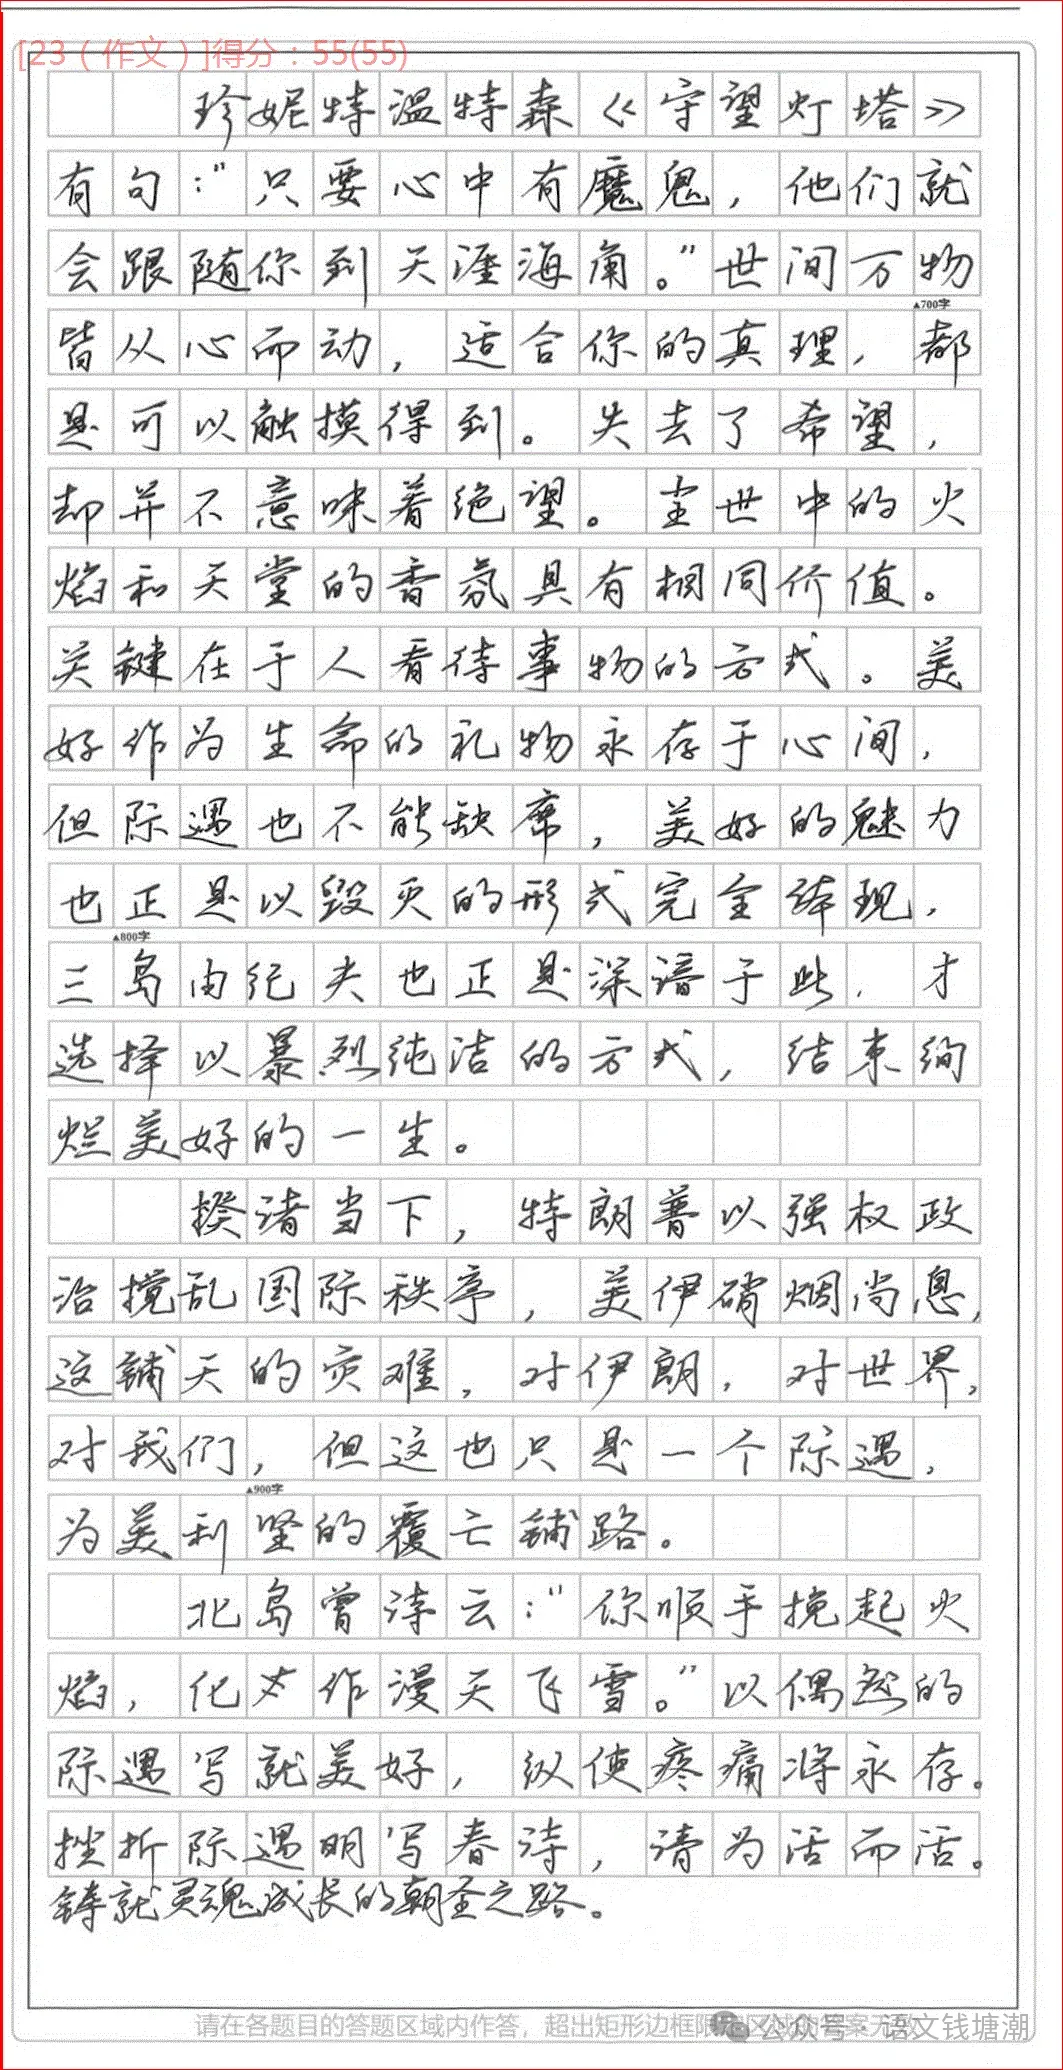 [23（作文）]得分：55(55)
珍妮特温特森《守望灯塔》
有句："只要心中有魔鬼，他们就
会跟随你到天涯海角。"世间万物
▲700字
皆从心而动，适合你的真理，都
是可以触摸得到。失去了希望，
却并不意味着绝望。尘世中的火
焰和天堂的香氛具有相同价值。
关键在于人看待事物的方式。美
好作为生命的礼物永存于心间，
但际遇也不能缺席，美好的魅力
也正是以毁灭的形式完全体现，
▲800字
三岛由纪夫也正是深谙于此，才
选择以暴烈纯洁的方式，结束绚
烂美好的一生。
揆诸当下，特朗普以强权政
治搅乱国际秩序，美伊硝烟尚息，
这铺天的灾难，对伊朗，对世界，
对我们，但这也只是一个际遇，
▲900字
为美利坚的覆亡铺路。
北岛曾诗云："你顺手挽起火
焰，化作漫天飞雪。"以偶然的
际遇写就美好，纵使疼痛将永存。
挫折际遇明写春诗，请为活而活。
铸就灵魂成长的朝圣之路。
请在各题目的答题区域内作答，超出矩形边框限定区域的答案无效
公众号·语文钱塘潮